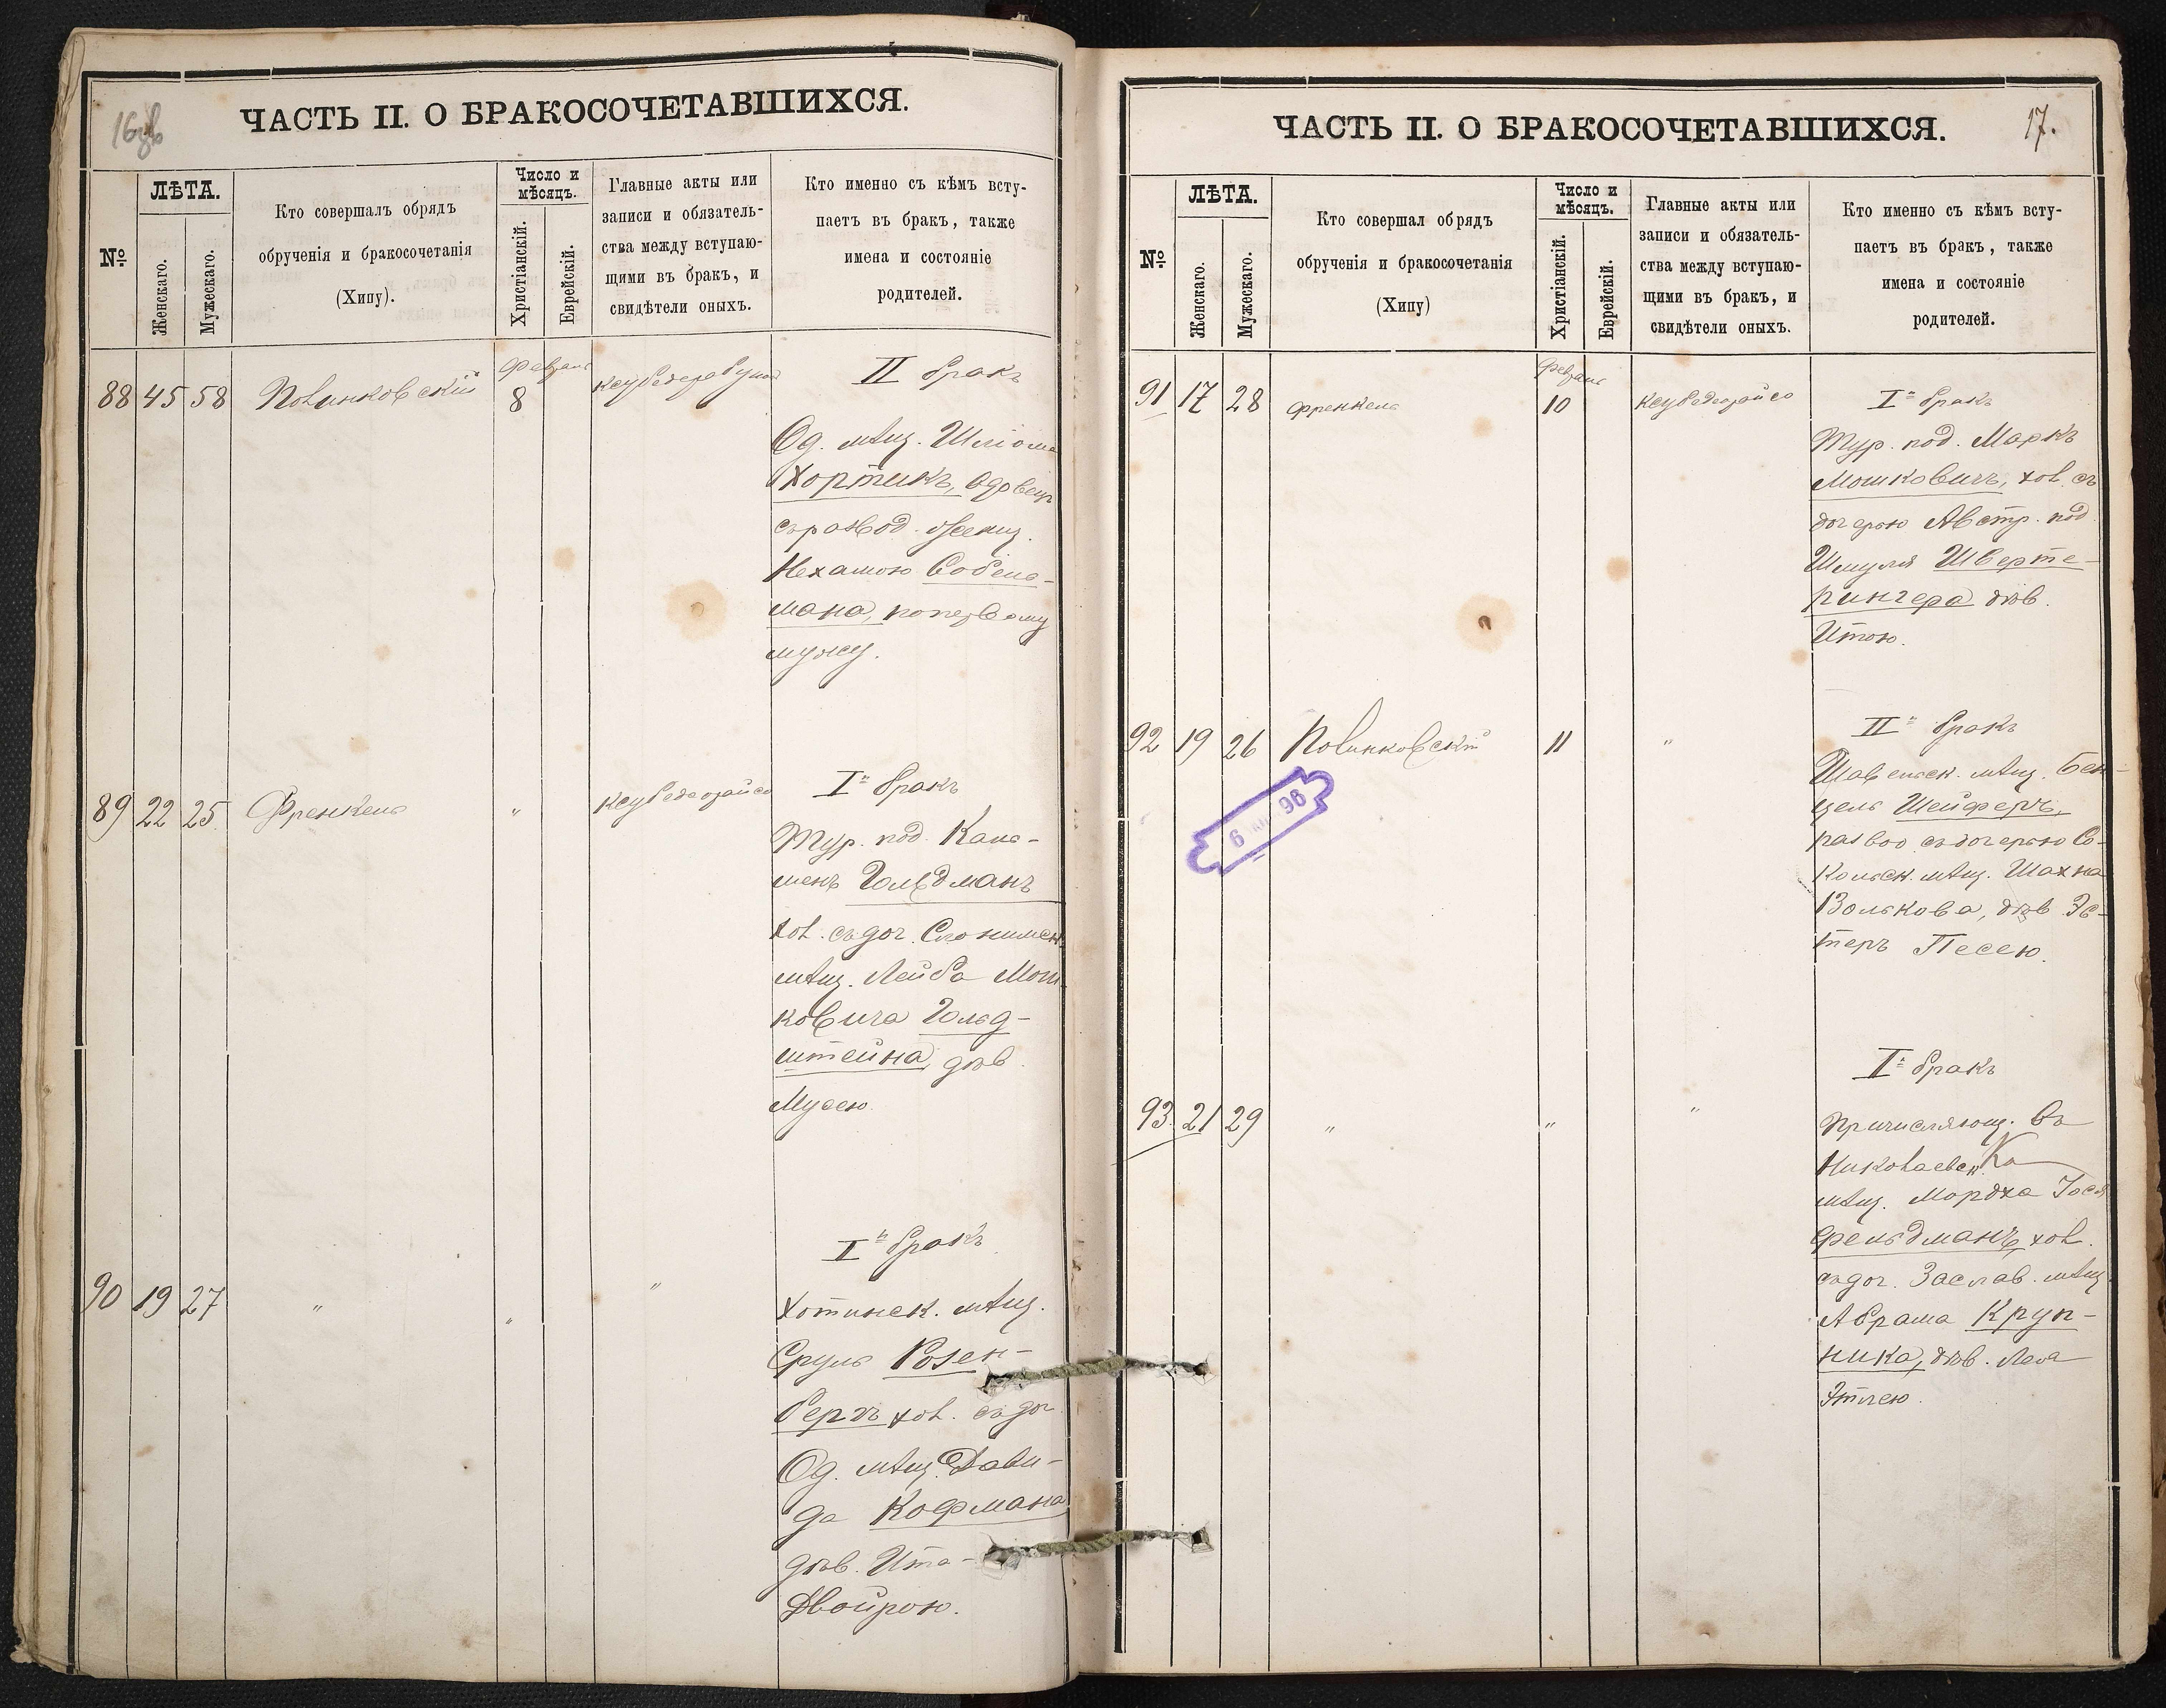 16об
ЧАСТЬ II. О БРАКОСОЧЕТАВШИХСЯ.
№
ЛѢТА.
Женскаго.
Мужескаго.
Кто совершалъ обрядъ
обрученія и бракосочетанія
(Хипу).
Число и
мѣсяцъ.
Христіанскій.
Еврейскій.
Главные акты или
записи и обязатель-
ства между вступаю-
щими въ бракъ, и
свидѣтели оныхъ.
Кто именно съ кѣмъ всту-
паетъ въ бракъ, также
имена и состояніе
родителей.
88 45 58 Повинковскій
Февраль
8
II бракъ
Од. мѣщ. Шліома
Хортикъ, вдовецъ
съ развод. женщ.
Нехамою Собель-
мана, по первому
мужу.
89 22 25 Френкель "
Iй бракъ
Тур. под. Каль-
менъ Гольдманъ
хол. съ доч. Слонимск.
мѣщ. Лейба Мош-
ковича Гольд-
штейна, дѣв.
Мусею.
90 19 27 " " "
Iй бракъ
Хотинск. мѣщ.
Сруль Розен-
бергъ хол. съ доч.
Од. мѣщ. Дави-
да Кофмана
дѣв. Ита-
Двойрою.
ЧАСТЬ II. О БРАКОСОЧЕТАВШИХСЯ.
17.
№
ЛѢТА.
Женскаго.
Мужескаго.
Кто совершал обрядъ
обрученія и бракосочетанія
(Хипу)
Число и
мѣсяцъ.
Христіанскій.
Еврейскій.
Главные акты или
записи и обязатель-
ства между вступаю-
щими въ бракъ, и
свидѣтели оныхъ.
Кто именно съ кѣмъ всту-
паетъ въ бракъ, также
имена и состояніе
родителей.
91 17 28 Френкель
Февраль
10
Iй бракъ
Тур. под. Маркъ
Мошковичъ, хол. съ
дочерью Австр. под.
Шмуля Шверте-
рингера дѣв.
Итою.
92 19 26 Повинковскій 11 "
IIй бракъ
Шавельск. мѣщ. Бен-
цель Шейферъ,
развод. съ дочерью Со-
кольск. мѣщ. Шахна
Волькова, дѣв. Эс-
теръ Песею.
6 96
93 21 29 " " "
Iй бракъ
Причисляющ. въ
Николаевск.
мѣщ. Мордха Іосъ
Фельдманъ, хол.
съ доч. Заслав. мѣщ.
Абрама Круп-
ника, дѣв. Леа
Этлею.